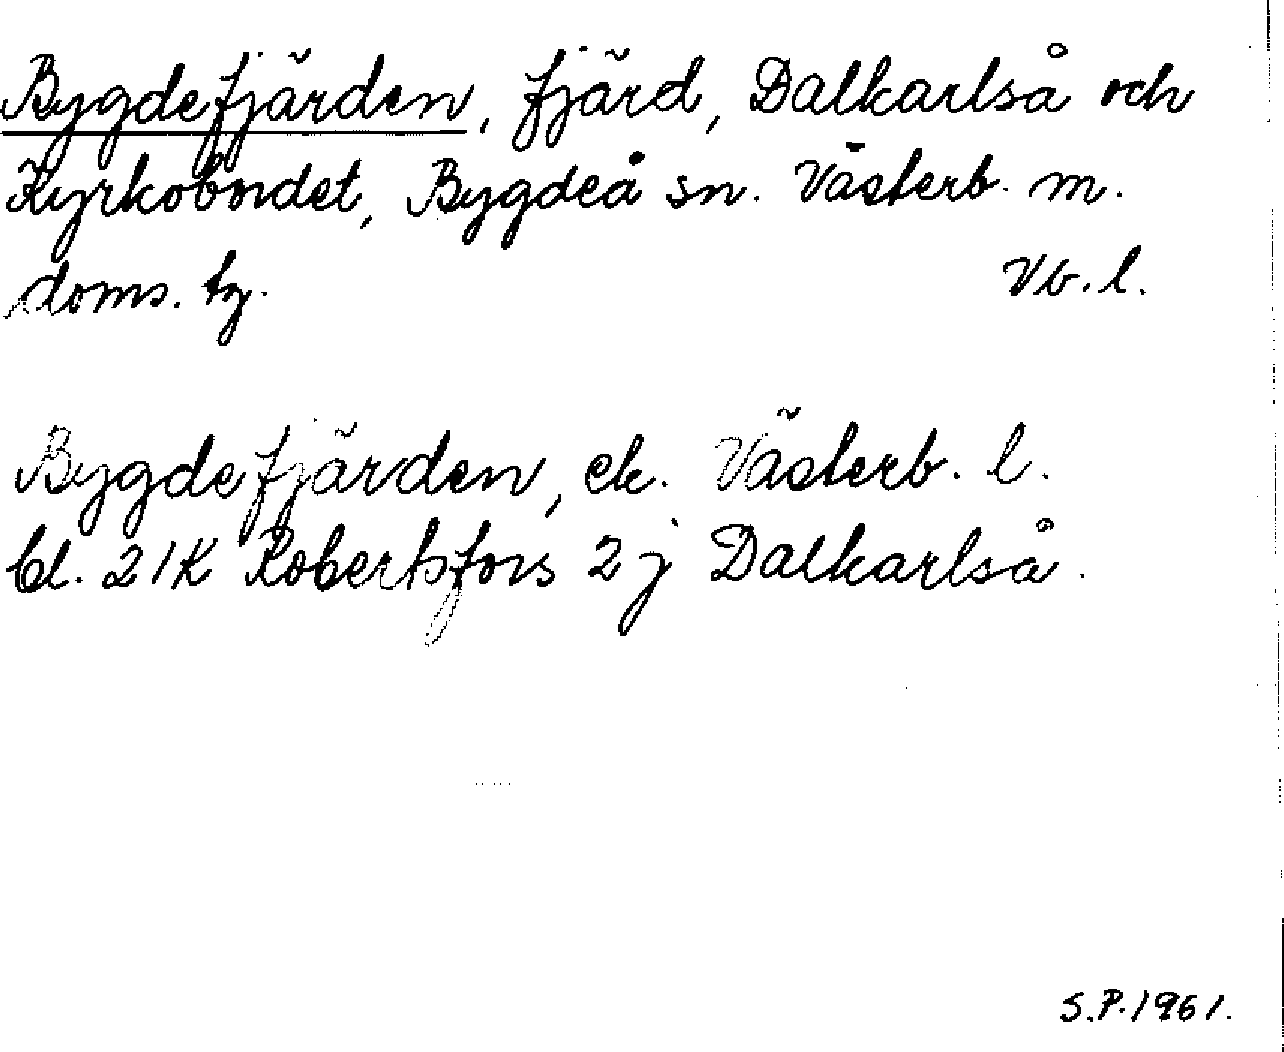 Bygdefjärden, fjärd, Dalkarlså och
Kyrkobordet, Bygdeå sn. Västerb. m.
doms. tg.
Vb. l.
Bygdefjärden, ek. Västerb. l.
bl. 21K Robertsfors 2 j Dalkarlså.
S.P. 1961.